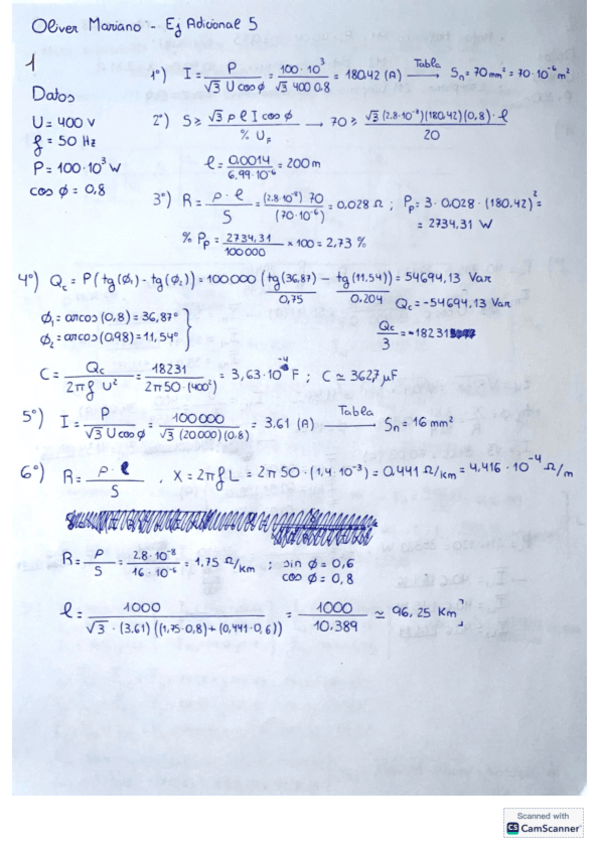 Oliver Mariano - Ej Adicional 5
1
Datos
U = 400 V
f = 50 Hz
P = 100·10³ W
cos φ = 0,8
1º) I = P / √3 U cos φ = 100·10³ / √3 400 0.8 = 180.42 (A) Tabla → Sn = 70 mm² = 70·10⁻⁶ m²
2º) S ≥ √3 ρ l I cos φ / % UF → 70 ≥ √3 (2.8·10⁻⁸)(180.42)(0,8)·l / 20
l = 0.0014 / 6,99·10⁻⁶ = 200 m
3º) R = ρ·l / S = (2.8·10⁻⁸) 70 / (70·10⁻⁶) = 0.028 Ω ; Pp = 3·0.028·(180.42)² =
= 2734,31 W
% Pp = 2734,31 / 100000 × 100 = 2,73 %
4º) Qc = P(tg(φ1) - tg(φ2)) = 100000 (tg(36.87) - tg(11,54)) = 54694,13 Var
0,75 0.204 Qc = -54694,13 Var
φ1 = arcos (0,8) = 36,87º
φ2 = arcos (0.98) = 11,54º
Qc / 3 = -18231
C = Qc / 2π f U² = 18231 / 2π 50·(400²) = 3,63·10⁻⁴ F ; C ≃ 362,7 μF
5º) I = P / √3 U cos φ = 100000 / √3 (20000)(0.8) = 3.61 (A) Tabla → Sn = 16 mm²
6º) R = ρ·l / S , X = 2π f L = 2π 50·(1,4·10⁻³) = 0,441 Ω/km = 4,416·10⁻⁴ Ω/m
R = ρ / S = 2.8·10⁻⁸ / 16·10⁻⁶ = 1,75 Ω/km ; sin φ = 0,6
cos φ = 0,8
l = 1000 / √3·(3,61)((1,75·0,8)+(0,441·0,6)) = 1000 / 10.389 ≃ 96,25 Km
Scanned with
CS CamScanner